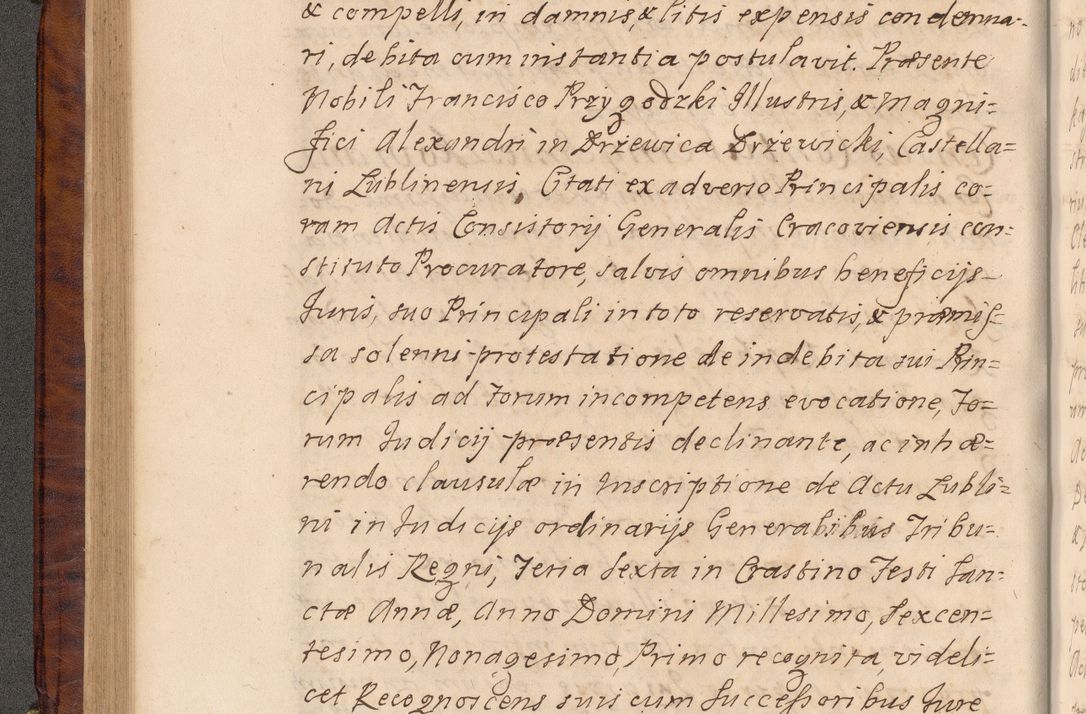 & compelli, in damnis, & litis expensis condemna-
ri, debita cum instantia postulavit. Præsente
Nobili Francisco Przygodzki Illustris, & Magni=
fici Alexandri in Drżewica Drżewicki, Castella=
ni Lublinensis, Citati ex adverso Principalis co=
ram Actis Consistorij Generalis Cracoviensis con=
stituto Procuratore, salvis omnibus beneficijs
Juris, suo Principali in toto reservatis, & præmis=
sa solenni protestatione de indebita sui Prin=
cipalis ad Forum incompetens evocatione, Fo=
rum Judicij præsentis declinante, ac inhæ=
rendo clausulæ in Inscriptione de Actu Lubli=
ni in Judicijs ordinarijs Generalibus Tribu=
nalis Regni, Feria Sexta in Crastino Festi San=
ctæ Annæ, Anno Domini Millesimo, Sexcen=
tesimo, Nonagesimo, Primo recognita, videli=
cet Recognoscens suis cum Successoribus Jure